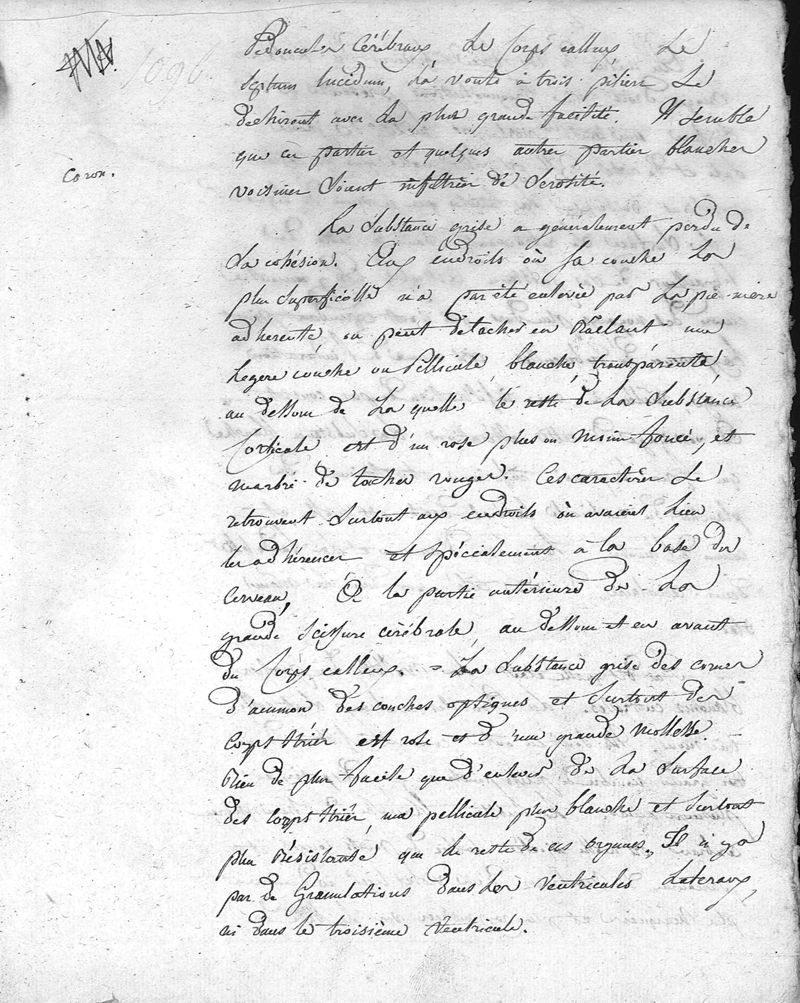 Pédoncules cérébraux le Corps calleux le
Septum lucidum, la voute à trois piliers se
déchirent avec la plus grande facilité. Il semble
que ces parties et quelques autres parties blanches
Coron.
voisines soient infiltrées de Sérosité.
La Substance grise a généralement perdu de
la cohésion. Aux endroits où sa couche la
plus superficielle n'a pas été enlevée par la pie-mère
adhérente, on peut détacher en raclant une
légère couche ou Pellicule, blanche, transparente
au dessous de la quelle le reste de la Substance
Corticale est d'un rose plus ou moins foncé, et
marbré de taches rouges. Ces caractères se
retrouvent surtout aux endroits où avaient lieu
les adhérences et spécialement à la base du
cerveau, à la partie antérieure de la
grande scissure cérébrale, au dessous et en avant
du Corps calleux. = La Substance grise des cornes
d'ammon des couches optiques et surtout des
Corps striés est rose et d'une grande mollesse.
Rien de plus facile que d'enlever de la Surface
des Corps striés, une pellicule plus blanche et surtout
plus résistante que le reste de ces organes. Il n'y a
pas de Granulations dans les Ventricules Latéraux,
ni dans le troisième Ventricule.